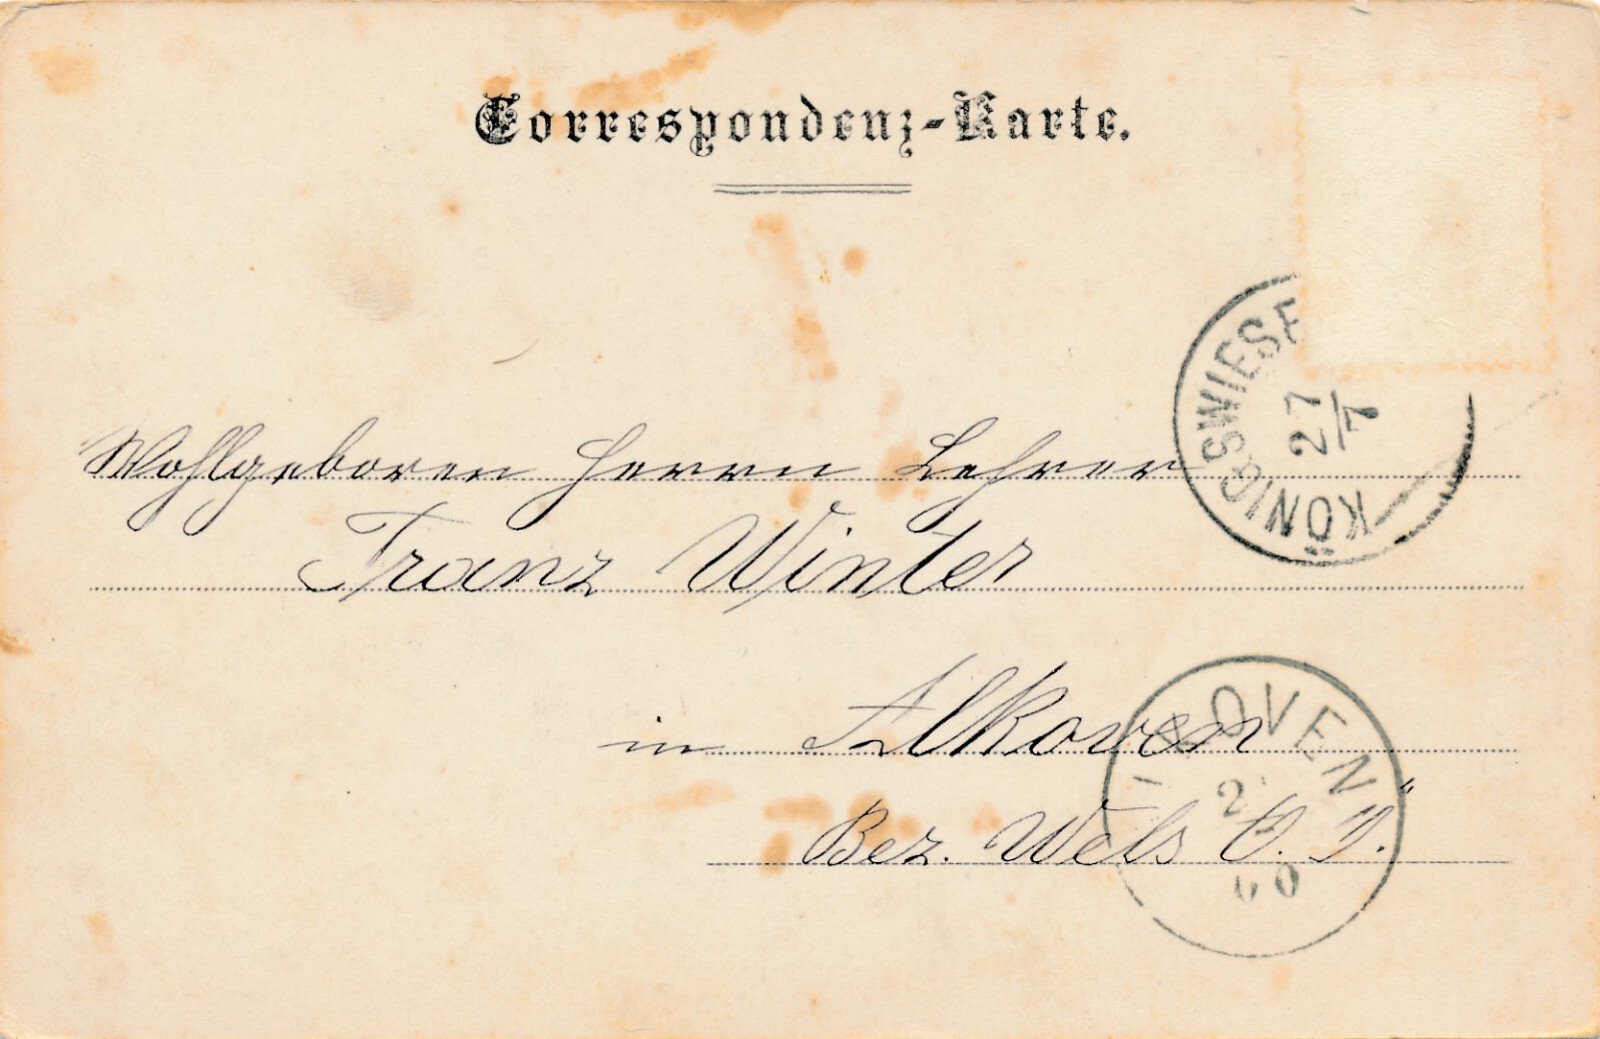 Correspondenz-Karte.
KÖNIGSWIESE
27/7
Wohlgeboren Herrn Lehrer
Franz Winter
in Alkoven
Bez. Wels O. Ö.
KOVEN
2
00